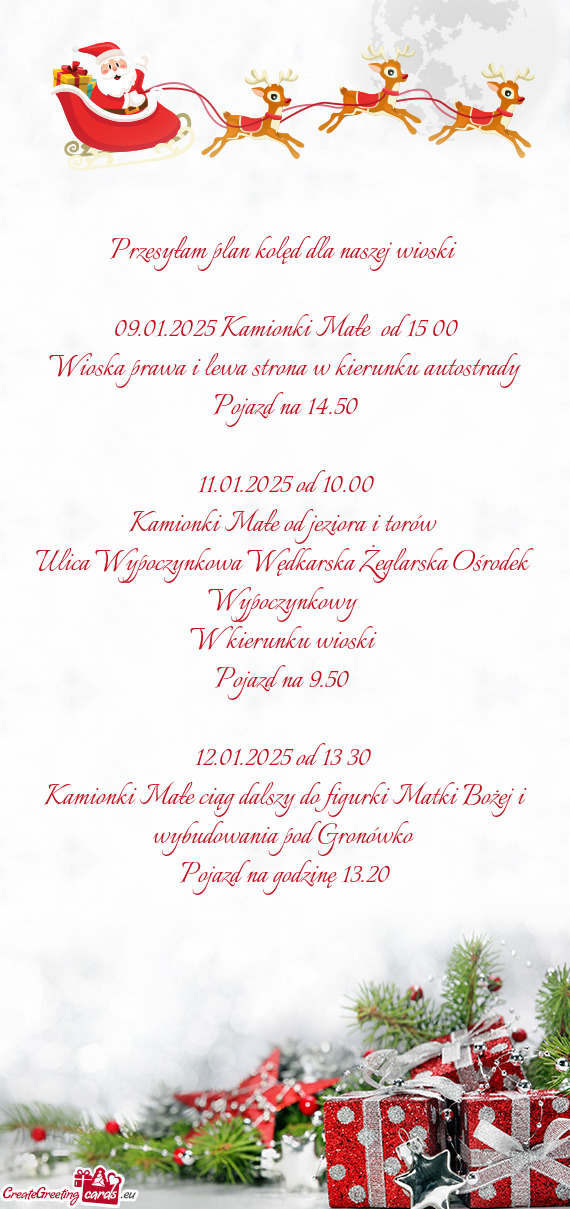 Przesyłam plan kolęd dla naszej wioski
09.01.2025 Kamionki Małe od 15 00
Wioska prawa i lewa strona w kierunku autostrady
Pojazd na 14.50
11.01.2025 od 10.00
Kamionki Małe od jeziora i torów
Ulica Wypoczynkowa Wędkarska Żeglarska Ośrodek
Wypoczynkowy
W kierunku wioski
Pojazd na 9.50
12.01.2025 od 13 30
Kamionki Małe ciąg dalszy do figurki Matki Bożej i
wybudowania pod Gronówko
Pojazd na godzinę 13.20
CreateGreeting cards .eu